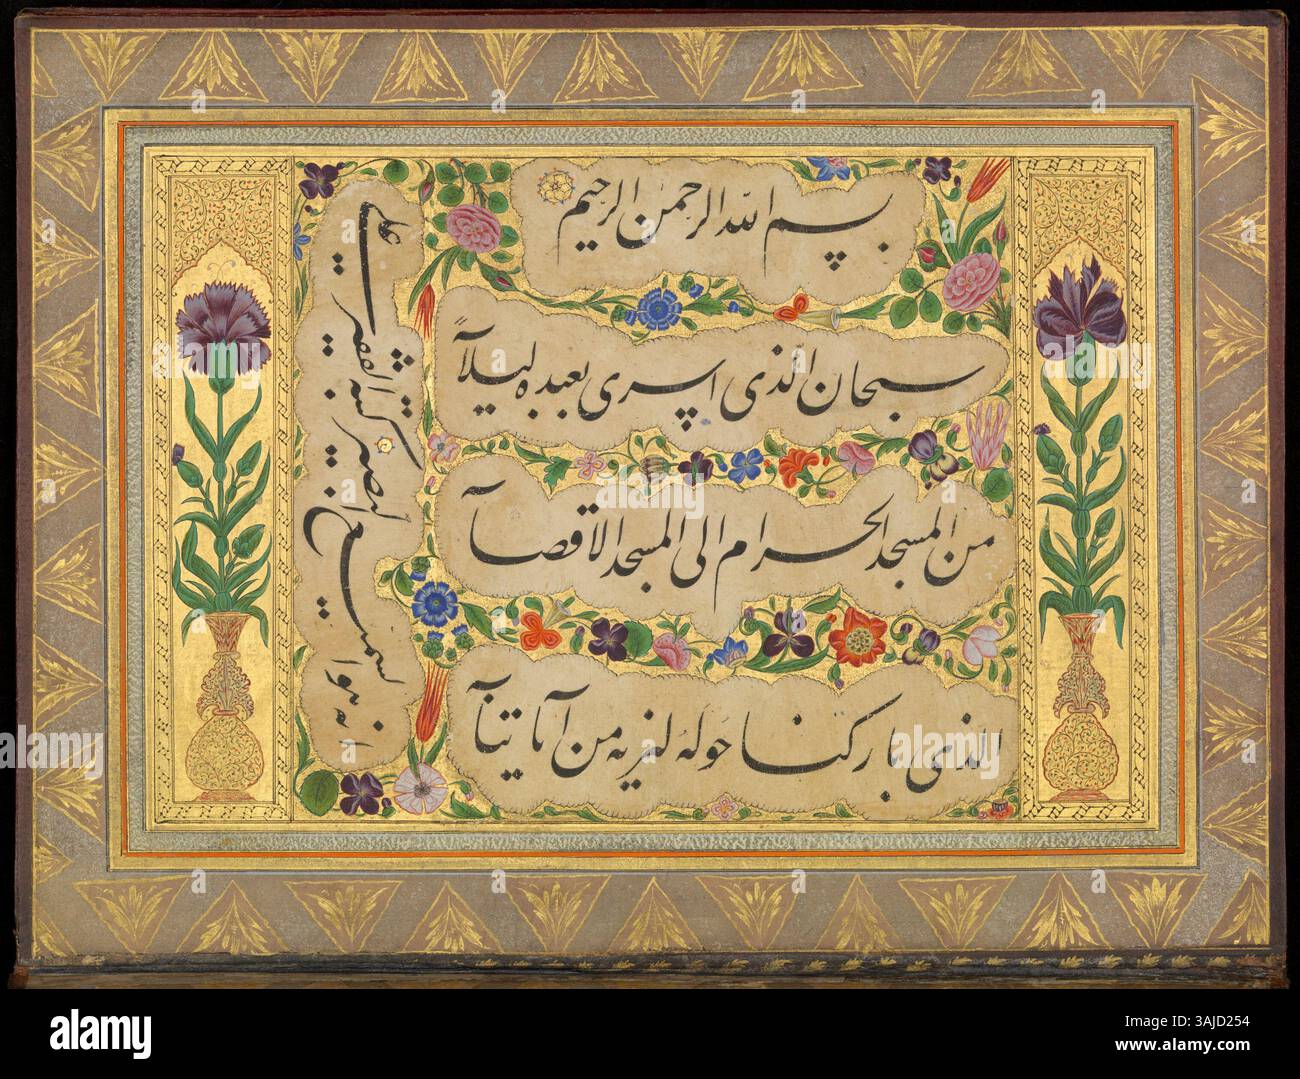 بسم الله الرحمن الرحیم
سبحان الذی اسری بعبده لیلاً
من المسجد الحرام الی المسجد الاقصا
الذی بارکنا حوله لنریه من آیاتنا
انه هو السمیع البصیر کتبه الفقیر
alamy
Image ID: 3AJD254
www.alamy.com